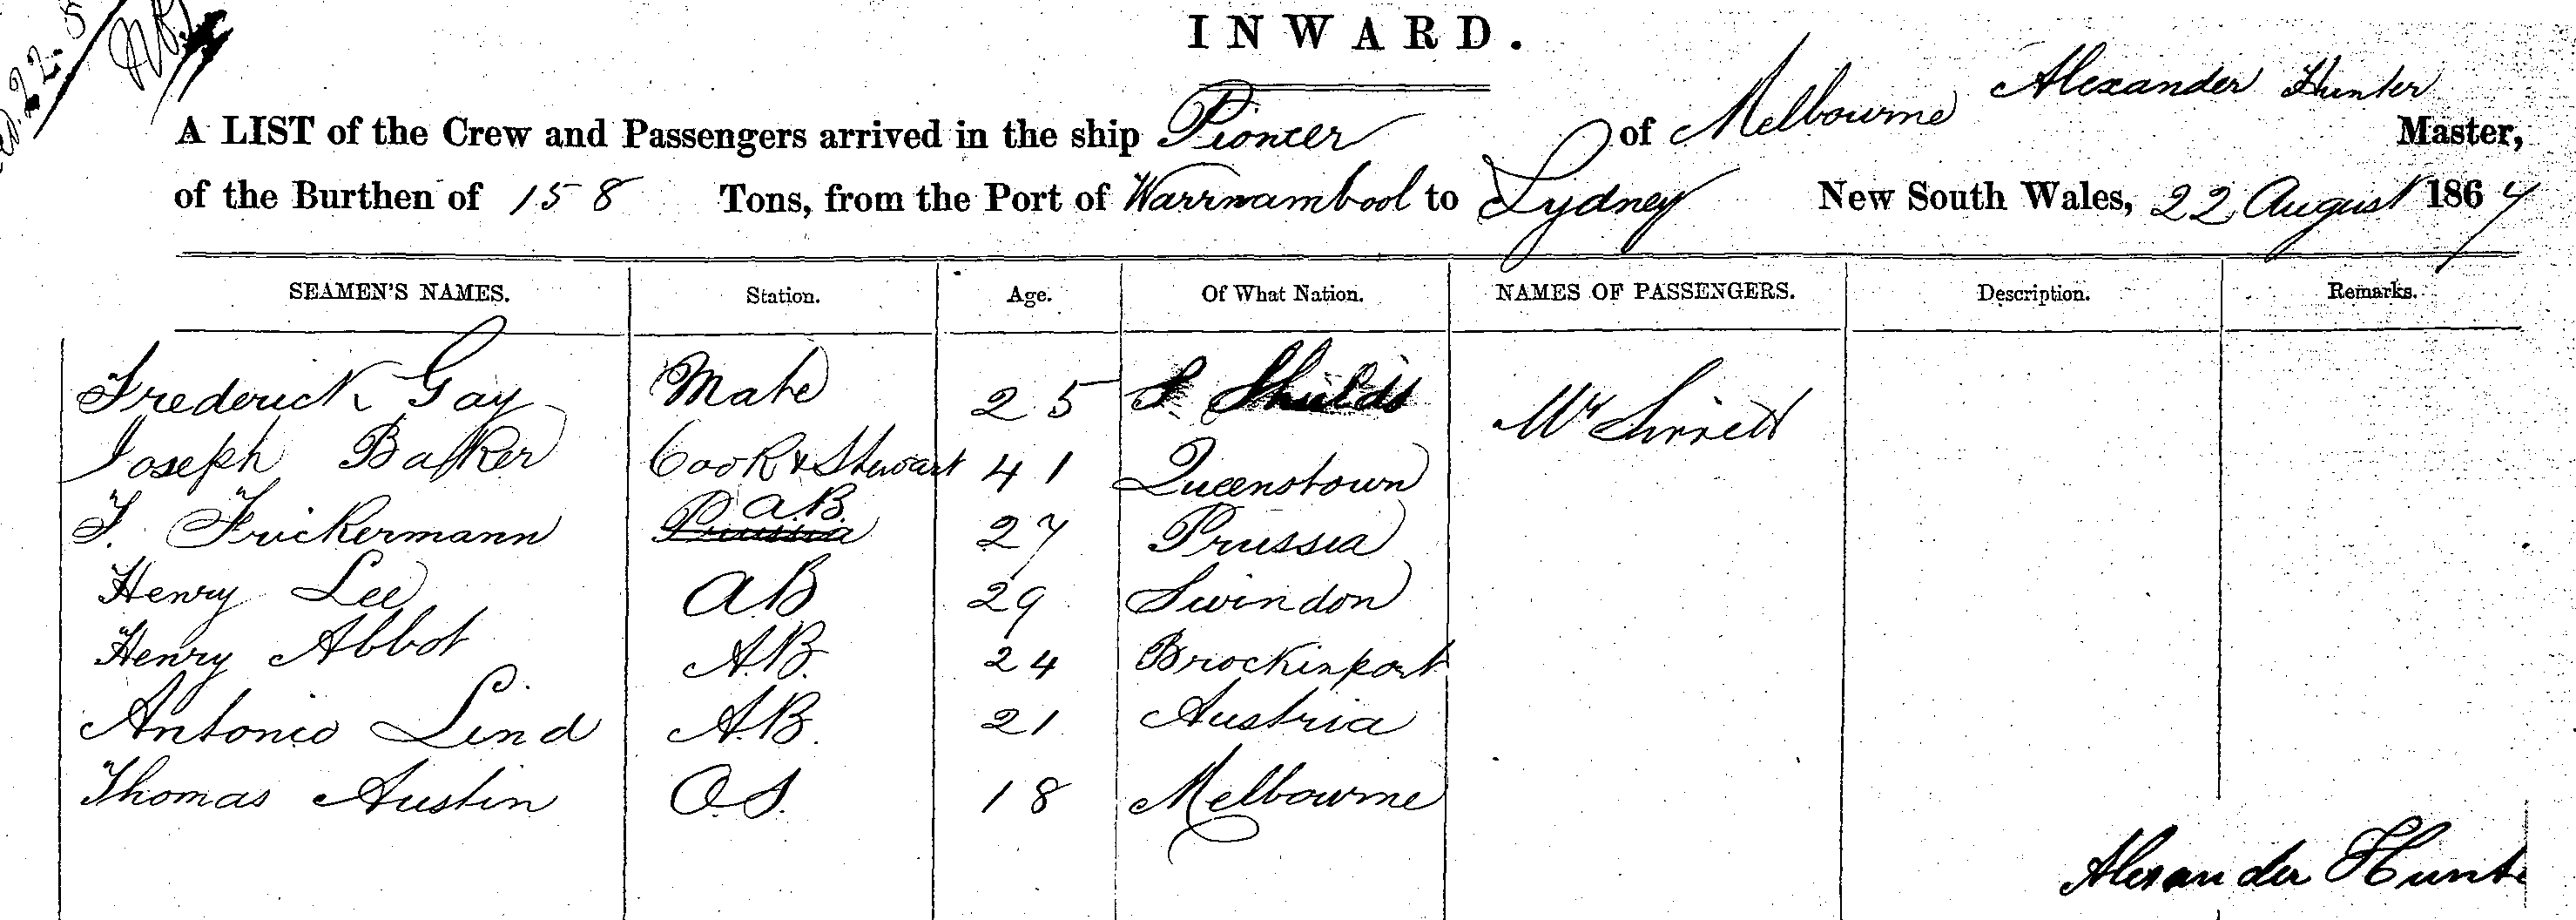 INWARD.
Alexander Hunter
A LIST of the Crew and Passengers arrived in the ship Pioneer of Melbourne Master,
of the Burthen of 158 Tons, from the Port of Warrnambool to Sydney New South Wales, 22 August 1867
SEAMEN'S NAMES. Station. Age. Of What Nation. NAMES OF PASSENGERS. Description. Remarks.
Frederick Gay Mate 25 S Shields Mr
Joseph Baker Cook & Stewart 41 Queenstown
A.B.
F. Frickermann Prussia 27 Prussia
Henry Lee AB 29 Swindon
Henry Abbot A.B. 24 Brockinport
Antonio Lind A.B. 21 Austria
Thomas Austin O.S. 18 Melbourne
Alexander Hunte